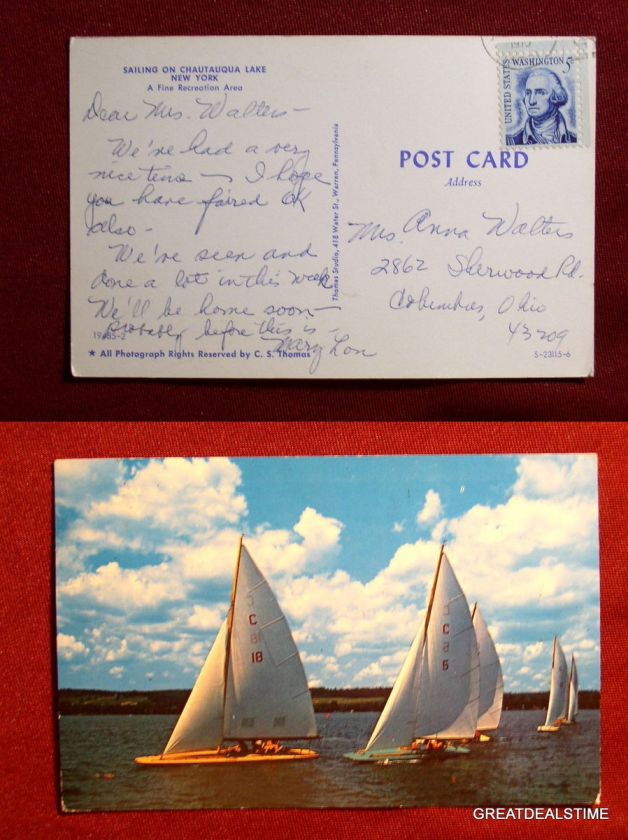 SAILING ON CHAUTAUQUA LAKE
NEW YORK
A Fine Recreation Area
Dear Mrs. Walters –
We've had a very
nice time – I hope
you have faired OK
also –
We've seen and
done a lot in this week
We'll be home soon –
Probably before this is –
Mary Lou
19485-2
★ All Photograph Rights Reserved by C. S. Thomas
Thomas Studio, 418 Water St., Warren, Pennsylvania
UNITED STATES
WASHINGTON 5c
POST CARD
Address
Mrs. Anna Walters
2862 Sherwood Rd.
Columbus, Ohio
43209
S-23115-6
C
18
C
6
GREATDEALSTIME